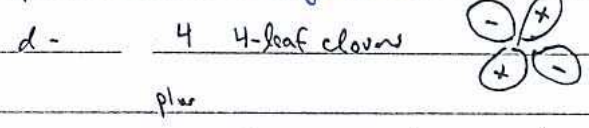 d - 4 4-leaf clovers - + + -
plus